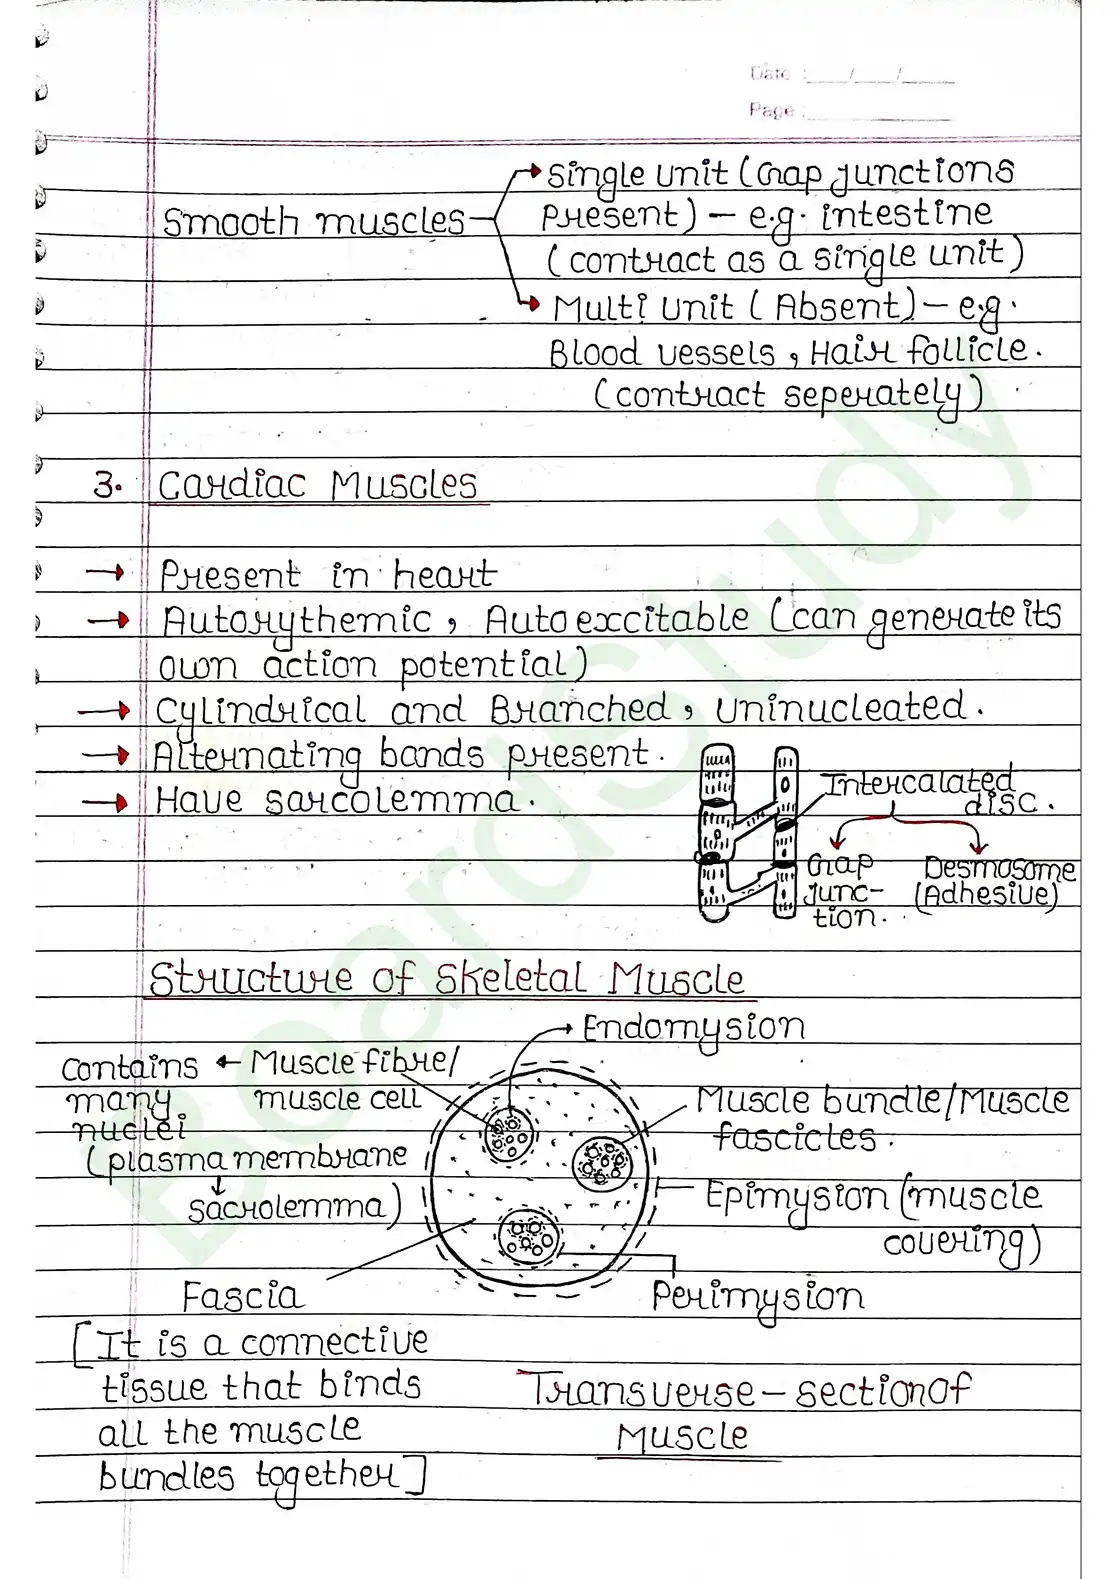 Date :___/___/___
Page :___________
Single unit (Gap junctions
Smooth muscles
Present) – e.g. intestine
(contract as a single unit)
Multi unit (Absent) – e.g.
Blood vessels, Hair follicle.
(contract seperately)
3. Cardiac Muscles
→ Present in heart
→ Autorythemic, Autoexcitable (can generate its
own action potential)
→ Cylindrical and Branched, uninucleated.
→ Alternating bands present.
→ Have sarcolemma.
Intercalated
disc.
Gap
junc-
tion.
Desmosome
(Adhesive)
Structure of Skeletal Muscle
Endomysion
contains ← Muscle fibre/
many muscle cell
nuclei
(plasma membrane
↓
sacrolemma)
Muscle bundle/Muscle
fascicles.
Epimysion (muscle
covering)
Fascia
Perimysion
[It is a connective
tissue that binds
all the muscle
bundles together]
Transverse – section of
Muscle
BoardStudy